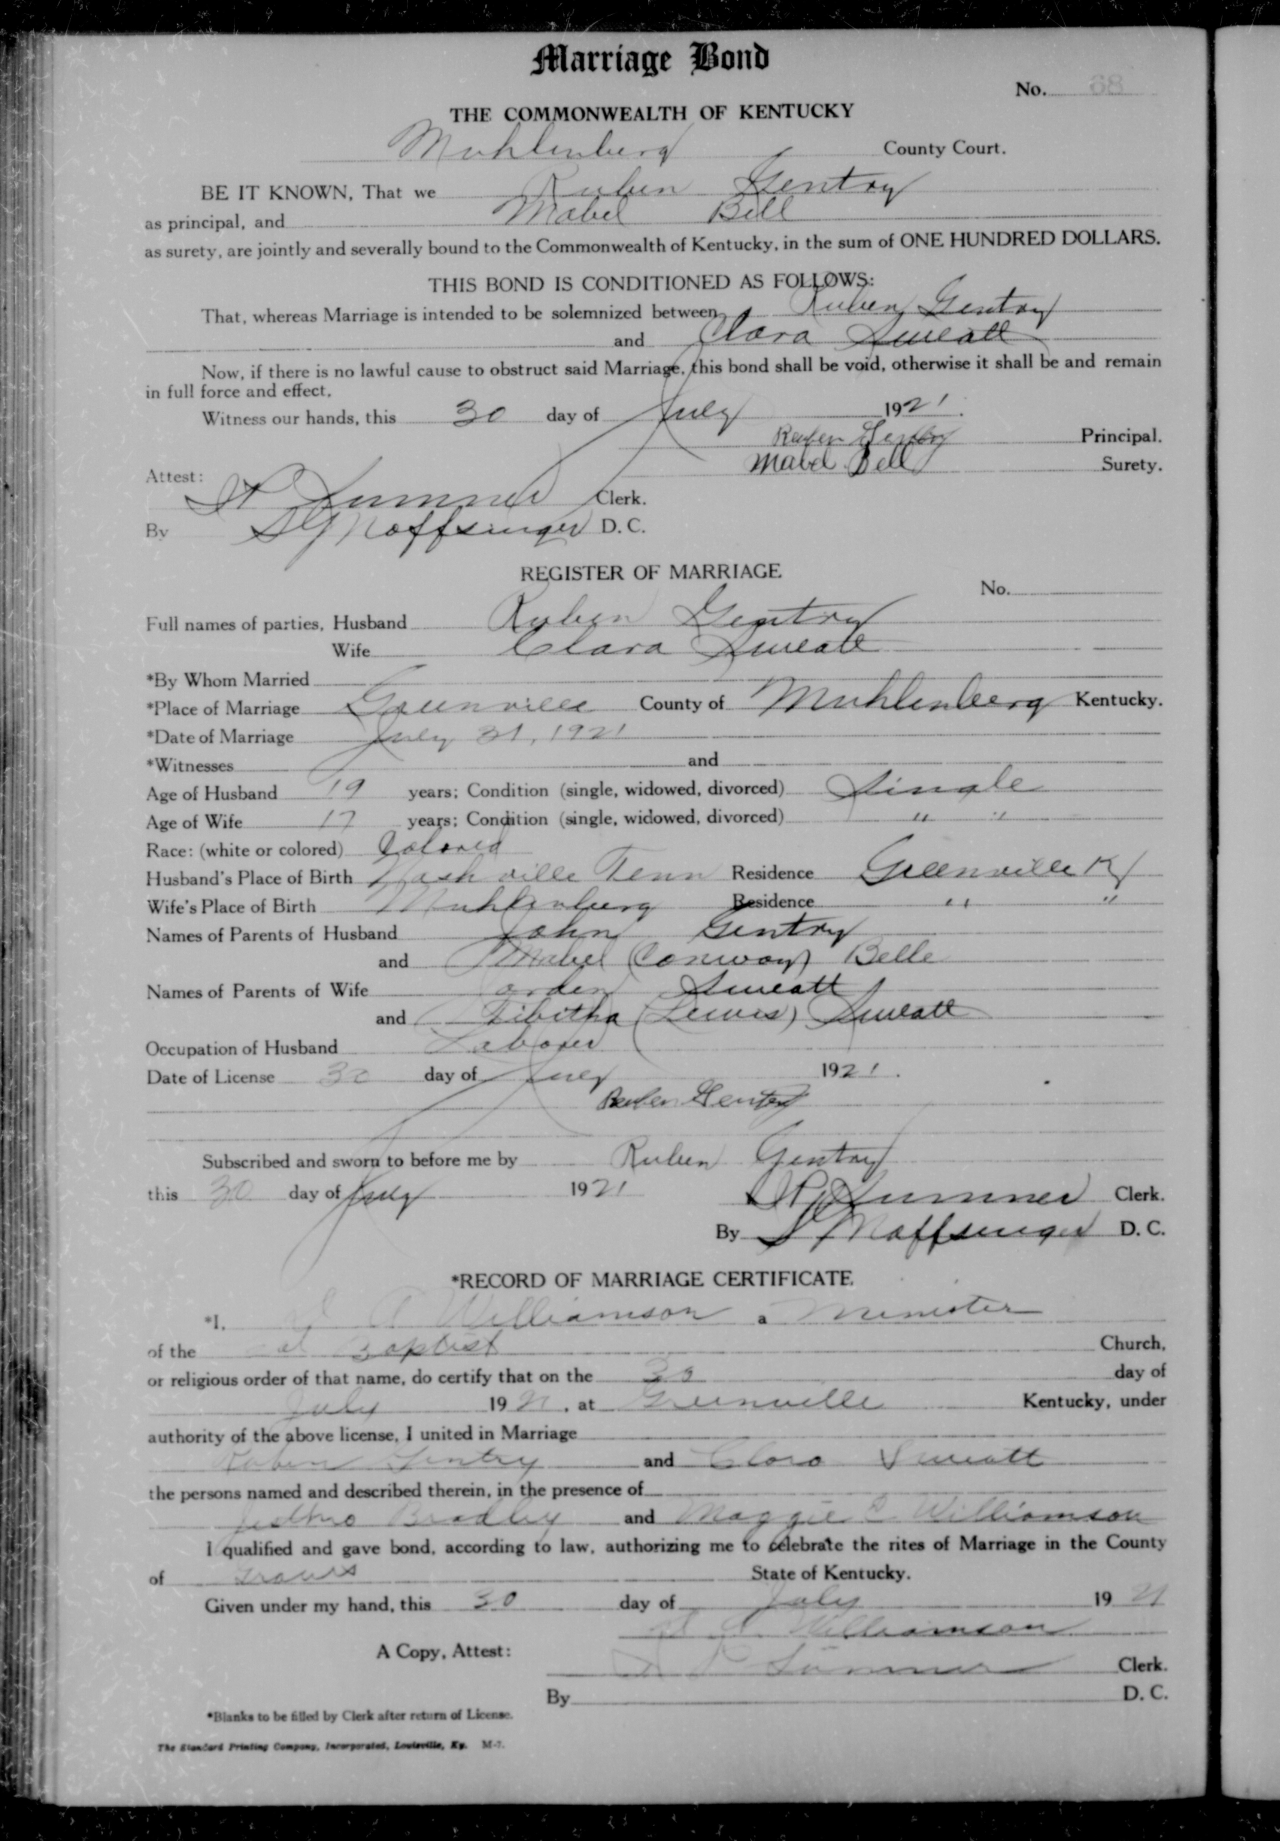 Marriage Bond
No. 68
THE COMMONWEALTH OF KENTUCKY
Muhlenberg County Court.
BE IT KNOWN, That we Ruben Gentry
as principal, and Mabel Bell
as surety, are jointly and severally bound to the Commonwealth of Kentucky, in the sum of ONE HUNDRED DOLLARS.
THIS BOND IS CONDITIONED AS FOLLOWS:
That, whereas Marriage is intended to be solemnized between Ruben Gentry
and Clara Sweatt
Now, if there is no lawful cause to obstruct said Marriage, this bond shall be void, otherwise it shall be and remain
in full force and effect.
Witness our hands, this 30 day of July 1921.
Ruben Gentry Principal.
Mabel Bell Surety.
Attest:
Sumner Clerk.
By Moffsinger D. C.
REGISTER OF MARRIAGE
No.
Full names of parties, Husband Ruben Gentry
Wife Clara Sweatt
*By Whom Married
*Place of Marriage Greenville County of Muhlenberg Kentucky.
*Date of Marriage July 31, 1921
*Witnesses and
Age of Husband 19 years; Condition (single, widowed, divorced) Single
Age of Wife 17 years; Condition (single, widowed, divorced) " "
Race: (white or colored) Colored
Husband's Place of Birth Nashville Tenn Residence Greenville Ky
Wife's Place of Birth Muhlenberg Residence " "
Names of Parents of Husband John Gentry
and Mabel (Conway) Belle
Names of Parents of Wife Sweatt
and Tibitha (Lewis) Sweatt
Occupation of Husband Laborer
Date of License 30 day of July 1921.
Ruben Gentry
Subscribed and sworn to before me by Ruben Gentry
this 30 day of July 1921
Sumner Clerk.
By Moffsinger D. C.
*RECORD OF MARRIAGE CERTIFICATE
*I, Williamson a Minister
of the Baptist Church,
or religious order of that name, do certify that on the 30 day of
July 1921, at Greenville Kentucky, under
authority of the above license, I united in Marriage
Ruben Gentry and Clara Sweatt
the persons named and described therein, in the presence of
Bradley and Maggie Williamson
I qualified and gave bond, according to law, authorizing me to celebrate the rites of Marriage in the County
of State of Kentucky.
Given under my hand, this 30 day of July 1921
Williamson
A Copy, Attest:
Sumner Clerk.
By D. C.
*Blanks to be filled by Clerk after return of License.
The Standard Printing Company, Incorporated, Louisville, Ky. M-7.